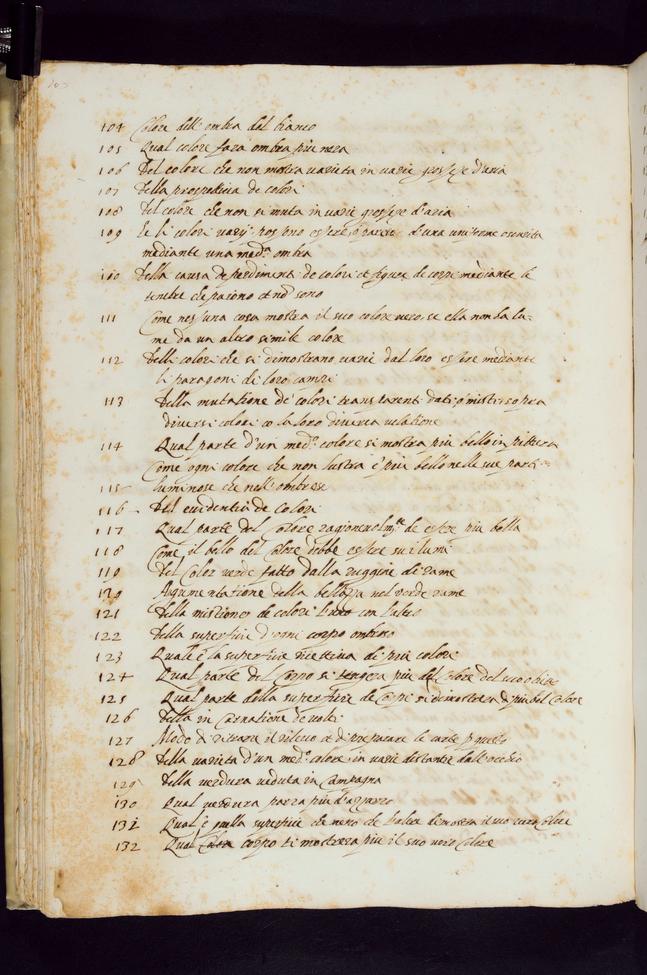 104 Colore dell' ombra del bianco
105 Qual colore fara ombra piu nera
106 Del colore che non mostra varieta in varie grosseze d'aria
107 Della prospettiva de colori
108 Del colore che non si muta in varie grosseze d'aria
109 Se li colori varij possono essere o parere d'una uniforme oscurita
mediante una med.ª ombra
110 Della causa de perdimenti de colori et figure de corpi mediante le
tenebre che paiono et nō sono
111 Come nessuna cosa mostra il suo colore vero, se ella non ha lu-
me da un altro simile colore
112 Delli colori che si dimostrano varie dal loro essere mediante
li paragoni de loro campi
113 Della mutatione de colori transparenti dati o misti sopra
diversi colori co la loro diversa relatione
114 Qual parte d'un med.º colore si mostra piu bello in pittura
Come ogni colore che non lustra è piu bello nelle sue parti
115 luminose che nell' ombrose
116 Del evidentia de colori
117 Qual parte del colore ragionevolm.te de essere piu bella
118 Come il bello del colore debbe essere su i lumi
119 Del color verde fatto dalla ruggine di rame
120 Aumentatione della bellezza nel verde rame
121 Della mistione de colori l'uno con l'altro
122 Della superficie d'ogni corpo ombroso
123 Quale è la superficie ricettiva di piu colori
124 Qual parte del corpo si tengera piu del colore del suo obietto
125 Qual parte della superficie de corpi si dimostera di piu bel colore
126 Della in carnatione de volti
127 Modo di ritrare il rilevo et di preparare le carte p questo
128 Della varieta d'un med.º colore in varie distantie dall'occhio
129 Della verdura veduta in campagna
130 Qual verdura parra piu d'azzurro
131 Qual è quella superficie che meno che l'altre dimostra il suo vero colore
132 Qual corpo ti mostrera piu il suo vero colore